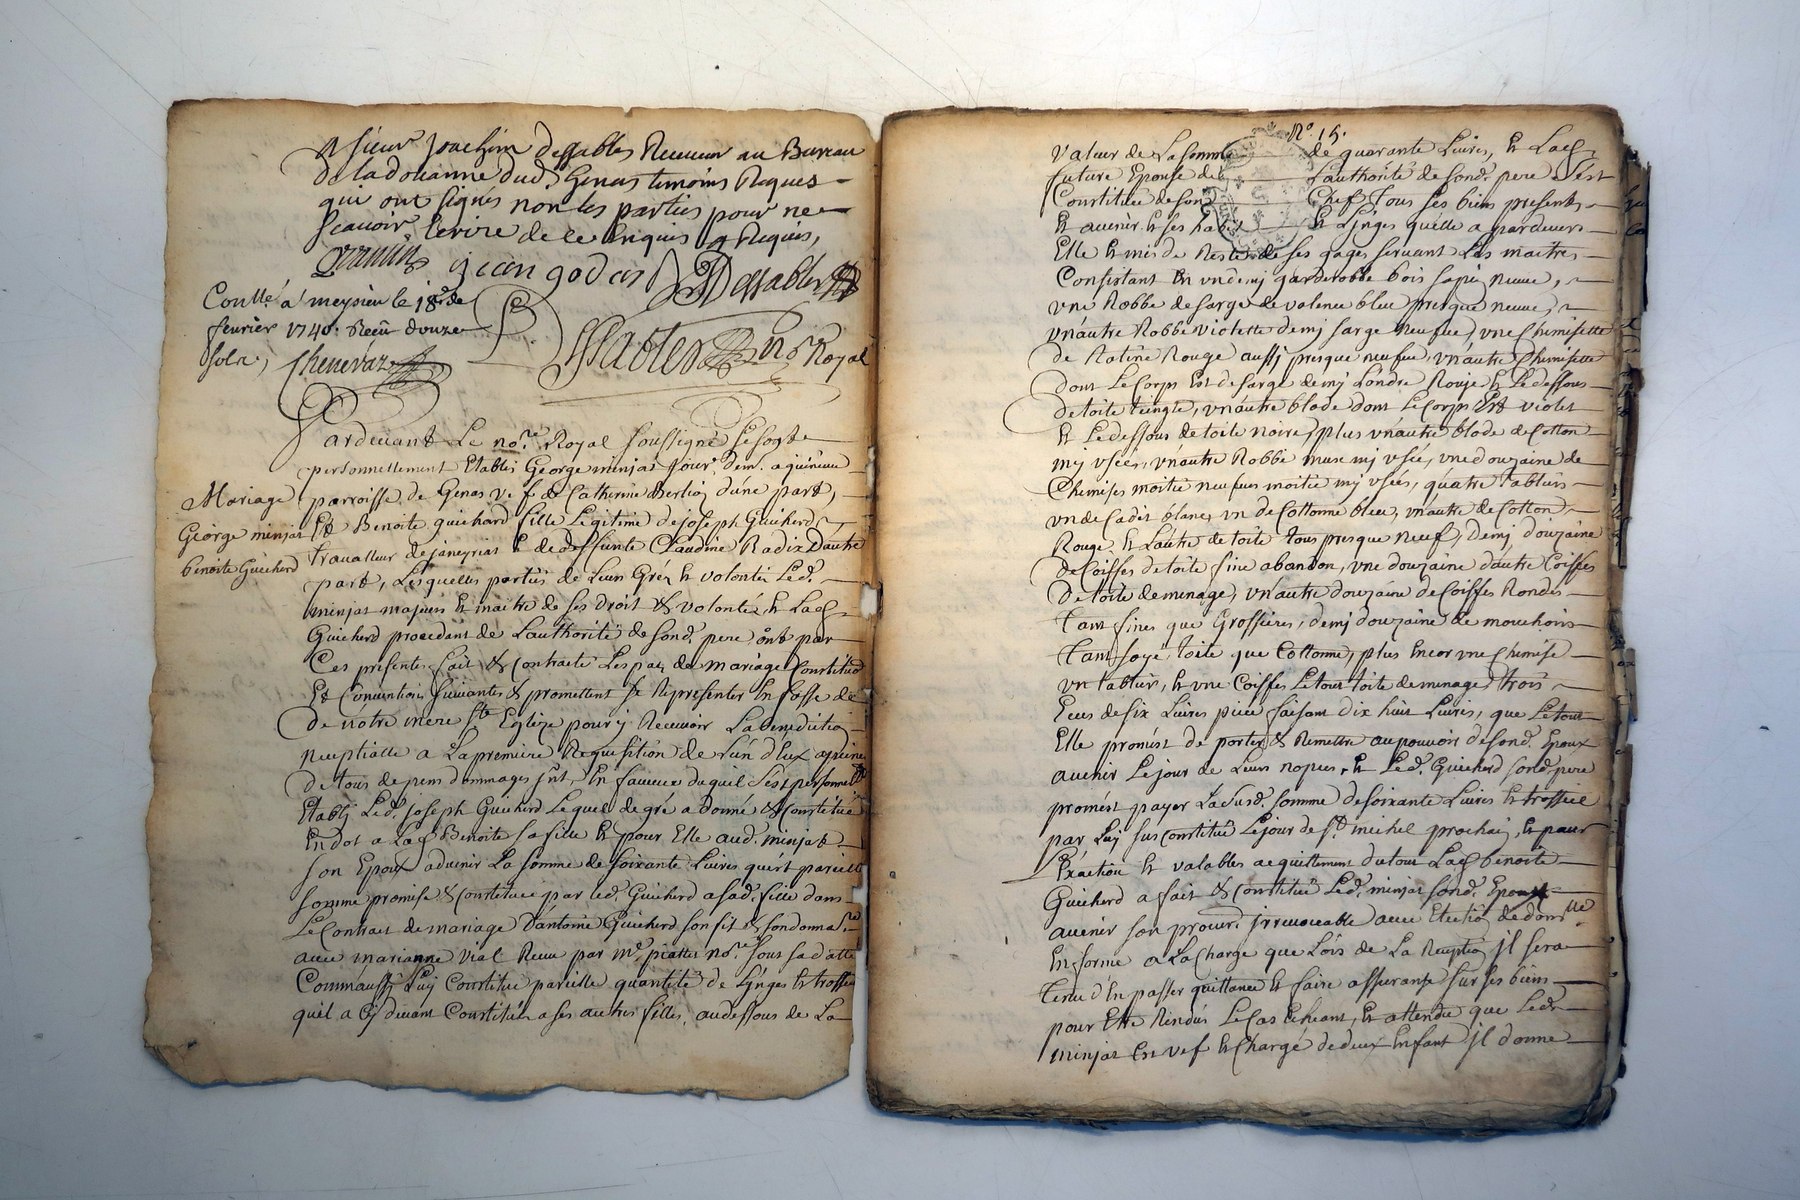 Sieur Joachim Dessables Receveur au Bureau
De la doüanne dud. Genas temoins Requis
qui ont signés non les parties pour ne
Scavoir Ecrire de ce Enquis & Requis,
jean godas Dessables
Coutlé a meysieu le 18e. de
fevrier 1740. Reçu douze
sols, Chenevaz
DesSables no.re Royal
Pardevant Le no.re Royal soussigné se sont
personnellement Etablis George minjat jour. dem.t a
parroisse de Genas veuf de Catherine Berlioz d'une part,
Mariage
George minjat
benoite Guicherd
Et Benoite guichard fille Legitime de joseph Guicherd
travailleur de janeyriat & de deffunte Claudine Radix Dautre
part, Lesquelles parties de Leur Gréz & volontéz Led.
minjat majeur & maitre de ses droit & volonté, & Lad.
Guicherd procedant de L'authorité de sond. pere ônt par
Ces presentes fait & contracté Les pac de mariage Constitu.on
Et Convention suivantes & promettent se Representer En fasse de
De notre mere Ste Eglize pour y Recevoir La Benediction
nuptialle a La premiere Requisition de L'un d'Eux a peine
De tous depens dommages jnt. En faveur duquel s'est personnell.
Etablj Led. joseph Guicherd Lequel de gré a donné & Constitué
En dot a Lad. Benoite sa fille & pour Elle aud. minjat
son Epoux advenir La somme de soixante Livres qu'est pareille
somme promise & Constituée par Led. Guicherd a sad. fille dans
Le Contrat de mariage D'antoine Guicherd son fils
avec marianne vial Reçu par me. piattet no.re sous sa datte
Comm'aussy Luy Constitue pareille quantité de Lynges & trossel
qu'il a Cy devant Constitué a ses autres filles, au dessous de La
N.o 15.
valeur de La somme de quarante Livres, & Lad.
future Epouse de l'authorité de sond. pere s'est
Constituée de son Chef Tous ses biens presents
& avenir & ses habits & Lynges qu'elle a pardevers
Elle & mis de Reste de ses gages servant Les maitres
Consistant En un demj garderobbe bois sapin neuve,
une Robbe de sarge de valence bleu presque neuve,
un'autre Robbe violette demj sarge neufve, une Chemisette
de Ratine Rouge aussj presque neufve, un'autre Chemisette
dont Le Corps Est de sarge demj Londre Rouje & Le dessous
de toile teingte, un'autre blode dont Le Corps Est violet
& Le dessous de toile noire, plus un'autre blode de Cotton
mj usée, un'autre Robbe muse mj usée, une douzaine de
Chemises moitié neufves moitié mj usées, quatre tabliers
un de Cadis blanc, un de Cottonne bleu, un'autre de Cotton
Rouge, & L'autre de toile tous presque neuf, Demj douzaine
de Coiffes de toile fine abandon, une douzaine d'autre Coiffes
De toile de menage, un'autre douzaine de Coiffes Rondes
tant fines que Grossieres, demj douzaine de mouchoirs
tant soye toile que Cottonne, plus Encor une Chemise
un tablier, & une Coiffes Le tout toile de menage, trois
Ecus de six Livres piece faisant dix huit Livres, que Le tout
Elle promést de porter & Remettre au pouvoir de sond. Epoux
avenir Le jour de Leurs nopces, & Led. Guicherd sond. pere
promést payer Lad. susd. somme de soixante Livres & trossel
par Luy sus Constitué Le jour de St. michel prochain, & pour
L'exaction & valables acquittement du tout Lad. benoite
Guicherd a fait & Constitué Led. minjat sond. Epoux
avenir son procur. jrrevocable avec Election de dom.lle
En forme a La Charge que Lors de La Reception jl sera
tenu d'En passer quittance & faire assurance sur ses biens
pour Etre Rendus Le Cas Echeant, Et attendu que Led.
minjat Est vef & Chargé de deux Enfant jl donne